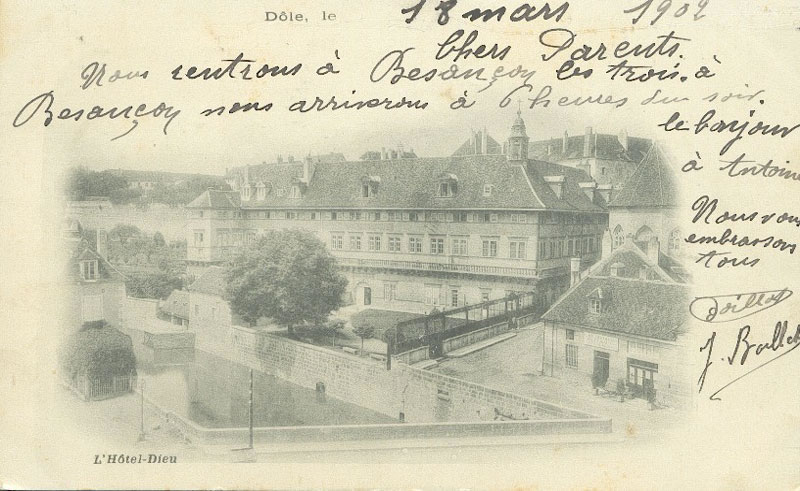 Dôle, le 18 mars 1902
Chers Parents.
Nous rentrons à Besançon les trois. à
Besançon nous arriverons à 6 heures du soir.
le bonjour
à Antoine
Nous vous
embrassons
tous
J.
L'Hôtel-Dieu